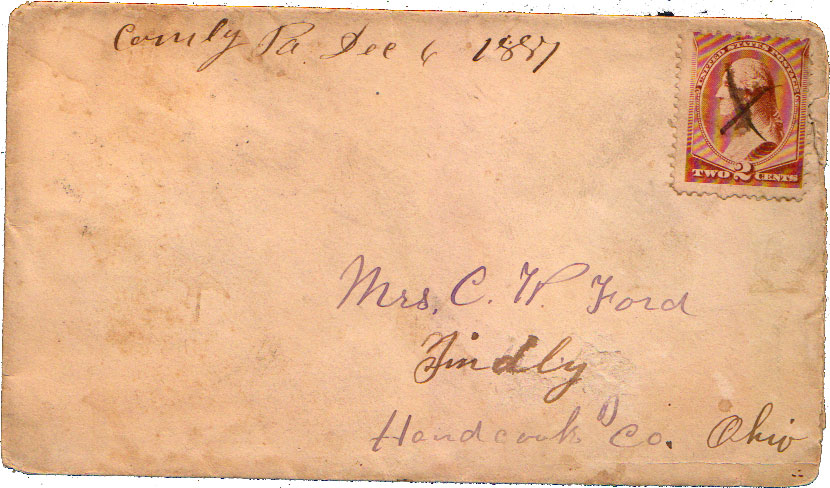 Comly Pa. Dec 6 1887
UNITED STATES POSTAGE
TWO 2 CENTS
Mrs. C. W. Ford
Findly
Handcook Co. Ohio